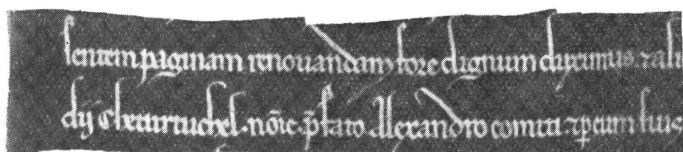 sentem paginam renouandam fore dignum duximus ⁊ ali
dij Cheturtuchel · nōīe · p̄fato Alexandro comiti ⁊ p̱ eum suis